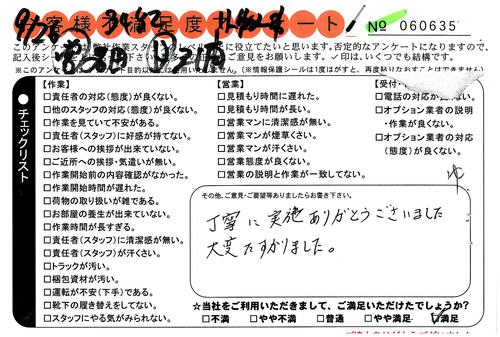 お客様満足度アンケート
№ 060635
このアンケートは弊社作業スタッフのレベル向上に役立てたいと思います。否定的なアンケートになりますので、
記入後
ご意見をお願いします。✓印は、いくつでも結構です。
※このアンケートは
目的以外には
いません。(※情報保護シールは1度はがすと、再度貼りなおすことはできません)
●チェックリスト
【作業】
□責任者の対応(態度)が良くない。
□他のスタッフの対応(態度)が良くない。
□作業を見ていて不安がある。
□責任者(スタッフ)に好感が持てない。
□お客様への挨拶が出来ていない。
□ご近所への挨拶・気遣いが無い。
□作業開始前の内容確認がなかった。
□作業開始時間が遅れた。
□荷物の取り扱いが雑である。
□お部屋の養生が出来ていない。
□作業時間が長すぎる。
□責任者(スタッフ)に清潔感が無い。
□責任者(スタッフ)が汗くさい。
□トラックが汚い。
□梱包資材が汚い。
□運転が不安(下手)である。
□靴下の履き替えをしてない。
□スタッフにやる気がみられない。
【営業】
□見積もり時間に遅れた。
□見積もり時間が長い。
□営業マンに清潔感が無い。
□営業マンが煙草くさい。
□営業マンが汗くさい。
□営業態度が良くない。
□営業の説明と作業が一致してない。
【受付・
□電話の対応が良くない。
□オプション業者の説明
・作業が良くない。
□オプション業者の対応
(態度)が良くない。
その他、ご意見・ご要望等ありましたらお書き下さい。
丁寧に実施ありがとうございました
大変たすかりました。
☆当社をご利用いただきまして、ご満足いただけたでしょうか?
□不満 □やや不満 □普通 □やや満足 ☑満足